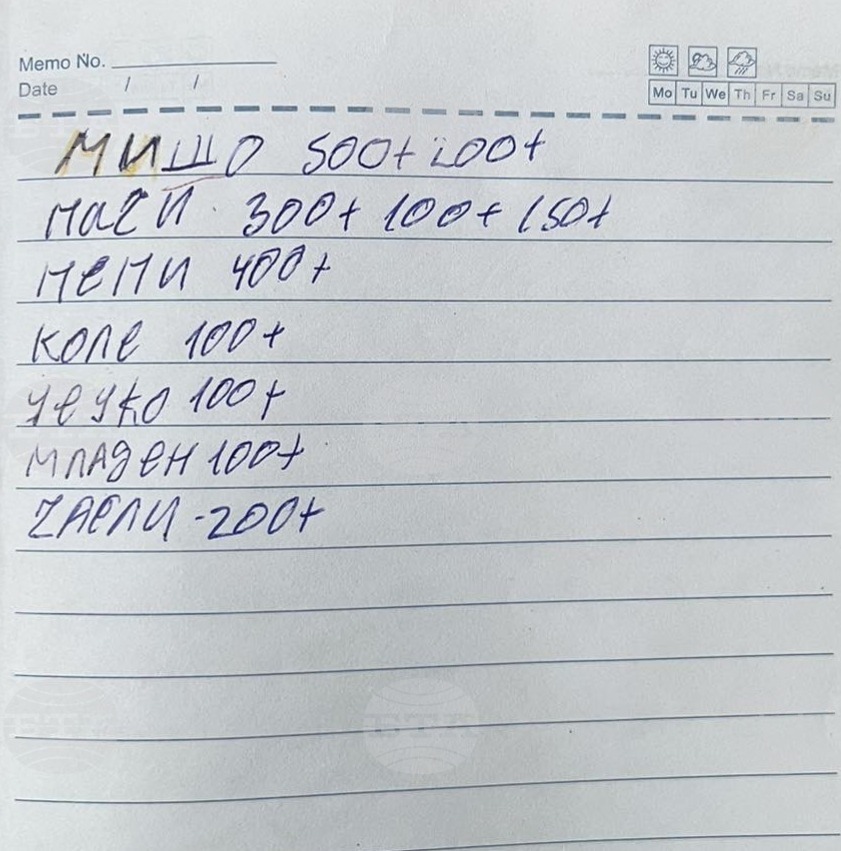 Memo No.
Date / /
Mo Tu We Th Fr Sa Su
МИШО 500+ 200+
МаСИ 300+ 100+ 150+
МеМИ 400+
Коле 100+
100+
МЛАДеН 100+
-200+
БТА